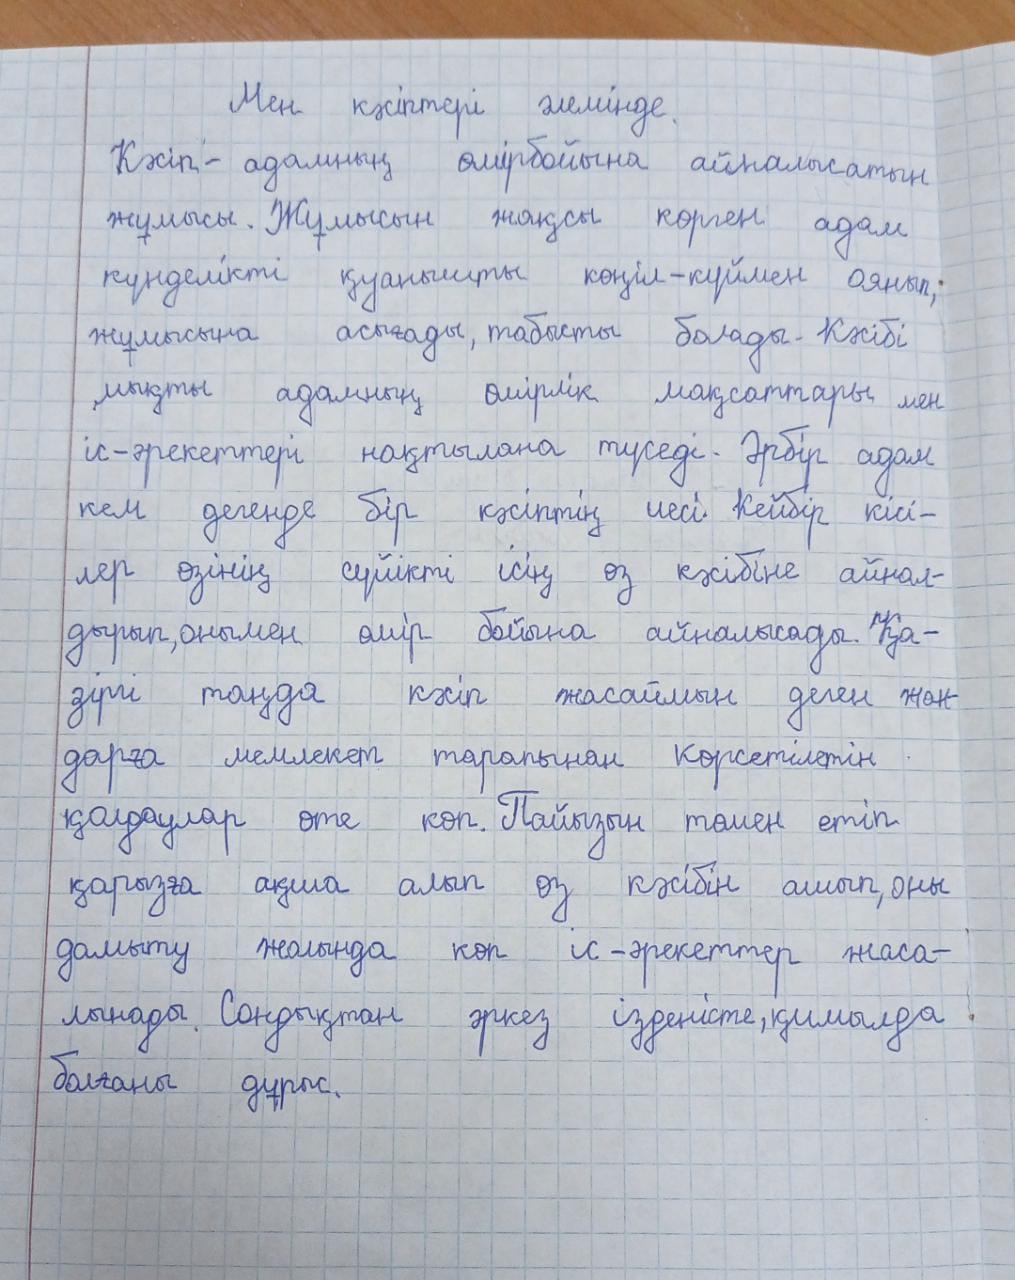 Мен кәсіптері әлемінде.
Кәсіп - адамның өмірбойына айналысатын
жұмысы. Жұмысын жақсы көрген адам
күнделікті қуанышты көңіл-күймен оянып,
жұмысына асығады, табысты болады. Кәсібі
мықты адамның өмірлік мақсаттары мен
іс-әрекеттері нақтылана түседі. Әрбір адам
кем дегенде бір кәсіптің иесі. Кейбір кісі-
лер өзінің сүйікті ісің өз кәсібіне айнал-
дырып, онымен өмір бойына айналысады. Қа-
зіргі таңда кәсіп жасаймын деген жан-
дарға мемлекет тарапынан көрсетілетін
қолдаулар өте көп. Пайызын төмен етіп
қарызға ақша алып өз кәсібін ашып, оны
дамыту жолында көп іс-әрекеттер жаса-
лынады. Сондықтан әркез ізденісте, қимылда
болғаны дұрыс.